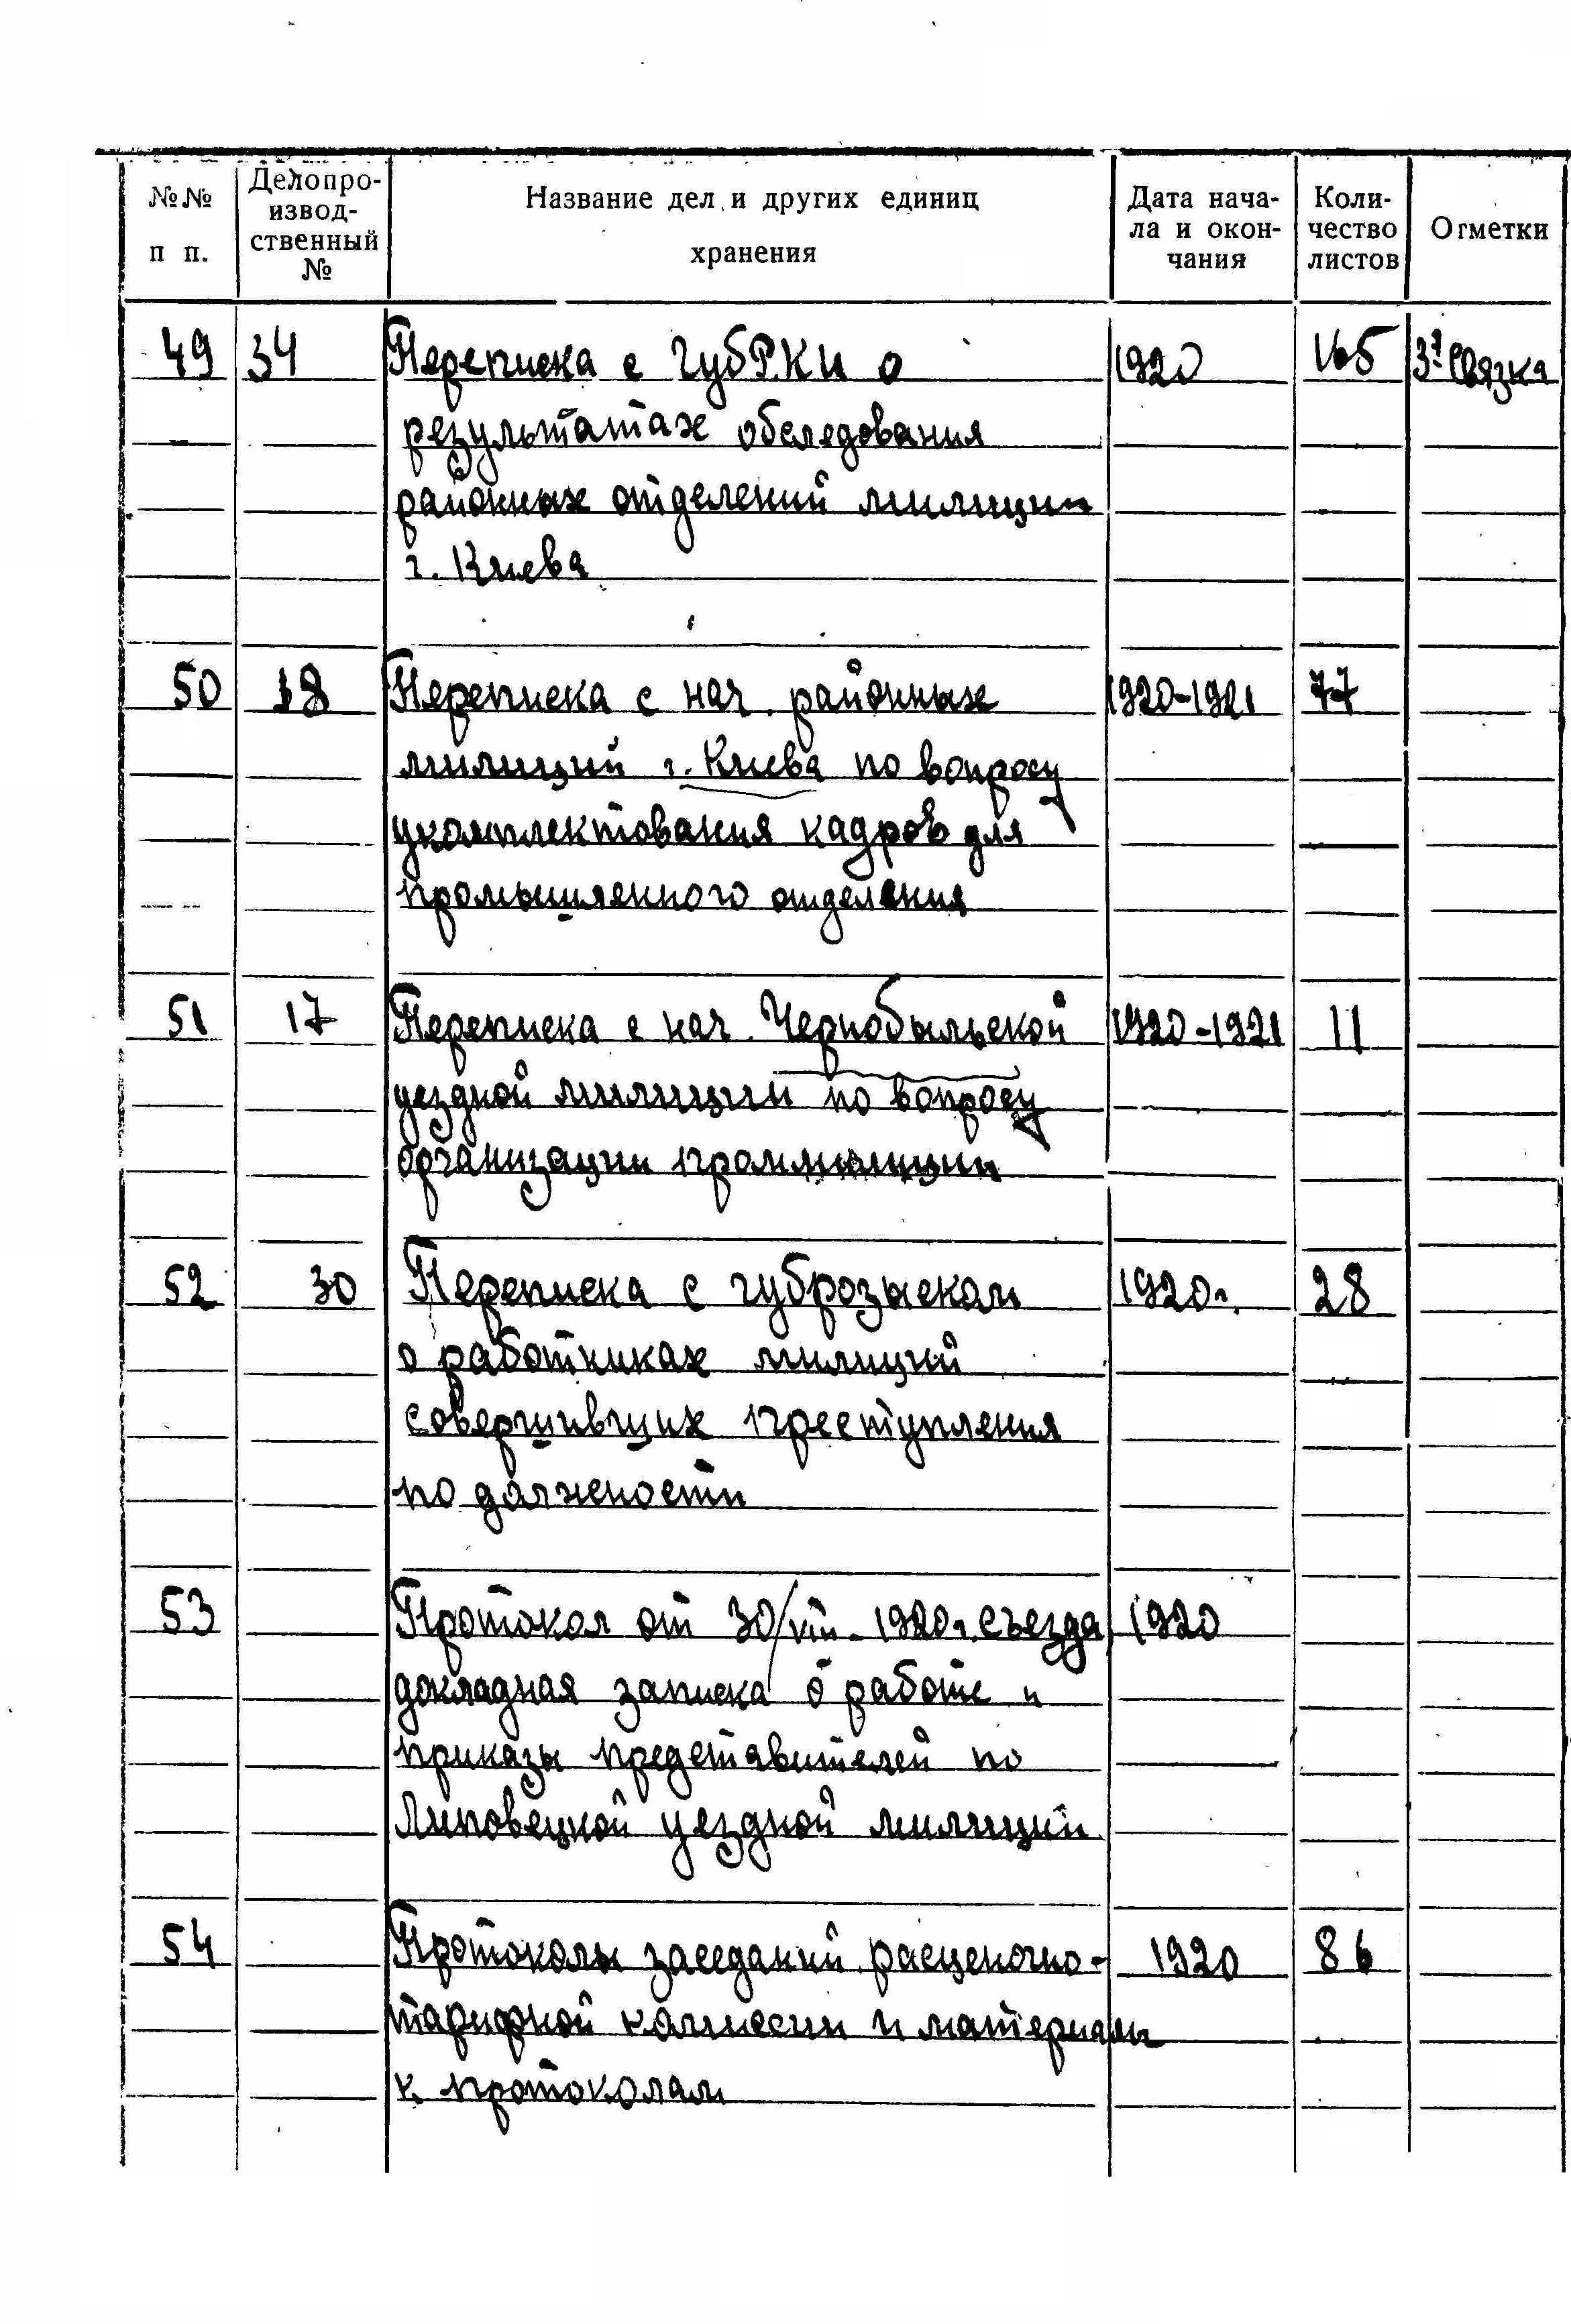 №№ п п.
Делопро-
извод-
ственный
№
Название дел и других единиц
хранения
Дата нача-
ла и окон-
чания
Коли-
чество
листов
Отметки
49 34 Переписка с ГубРКИ о 1920 165 Связка
результатах обследования
районных отделений милиции
г. Киева
50 18 Переписка с нач. районных 1920-1921 77
милиций г. Киева по вопросу
укомплектования кадров для
промышленного отделения
51 17 Переписка с нач. Чернобыльской 1920-1921 11
уездной милиции по вопросу
организации проммилиции
52 30 Переписка с губрозыском 1920г. 28
о работниках милиций
совершивших преступления
по должности
53 Протокол от 1920г. съезда 1920
докладная записка о работе и
приказы представителей по
Липовецкой уездной милиции
54 Протоколы заседаний расценочно- 1920 86
тарифной комиссии и материалы
к протоколам